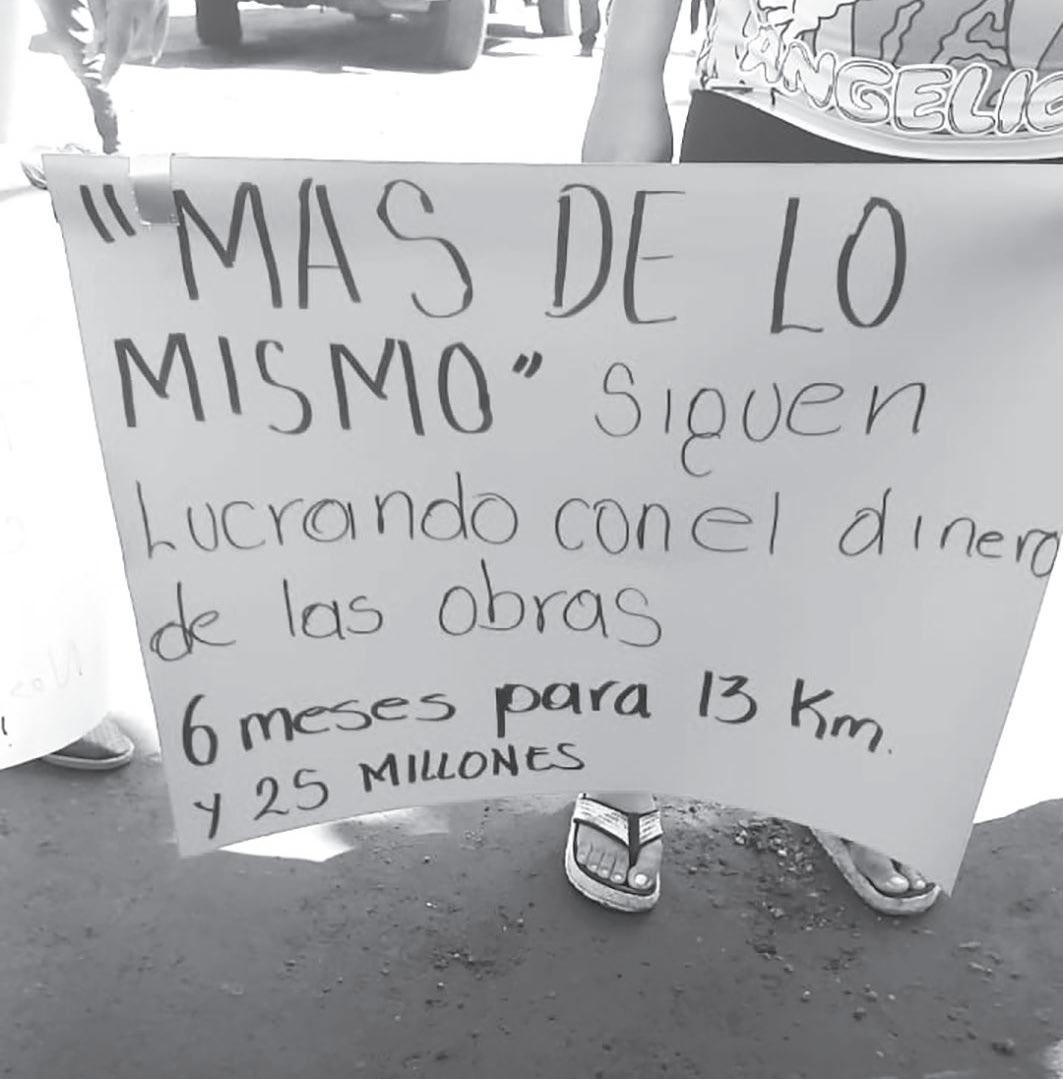 ANGELIC
"MAS DE LO
MISMO" Siguen
Lucrando con el dinero
de las obras
6 meses para 13 Km.
y 25 MILLONES